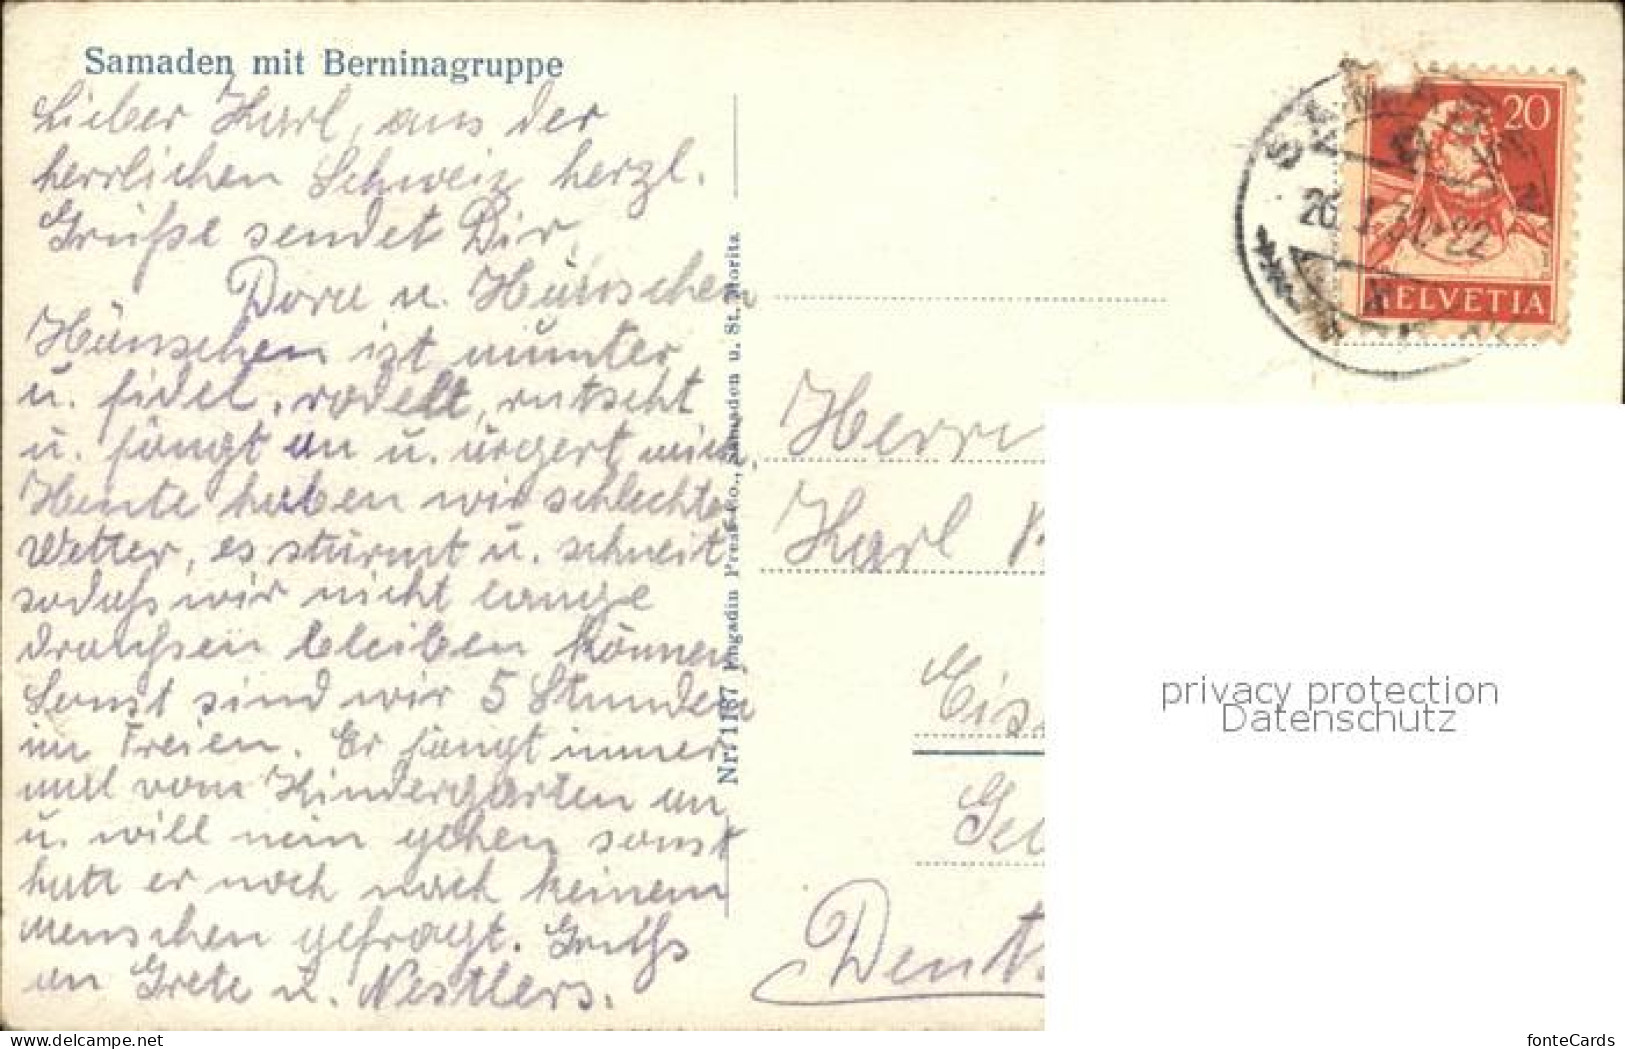 Samaden mit Berninagruppe
Lieber Karl, aus der
herrlichen Schweiz herzl.
Grüße sendet Dir
Dora u. Hänschen
Hänschen ist munter
u. fidel, rodelt, rutscht
u. fängt an u. ärgert mich.
Heute haben wir schlechtes
Wetter, es stürmt u. schneit
sodaß wir nicht lange
draußen bleiben können
Sonst sind wir 5 Stunden
im Freien. Er fängt immer
mal vom Kindergarten an
u. will rein gehen sonst
hatt er noch nach keinem
Menschen gefragt. Gruß
an Grete u. Nestlers.
Nr. 1187 Engadin Press Co., Samaden u. St. Moritz
SAMADEN
26.I.31-22
20
HELVETIA
Herrn
Karl
privacy protection
Datenschutz
fonteCards
www.delcampe.net